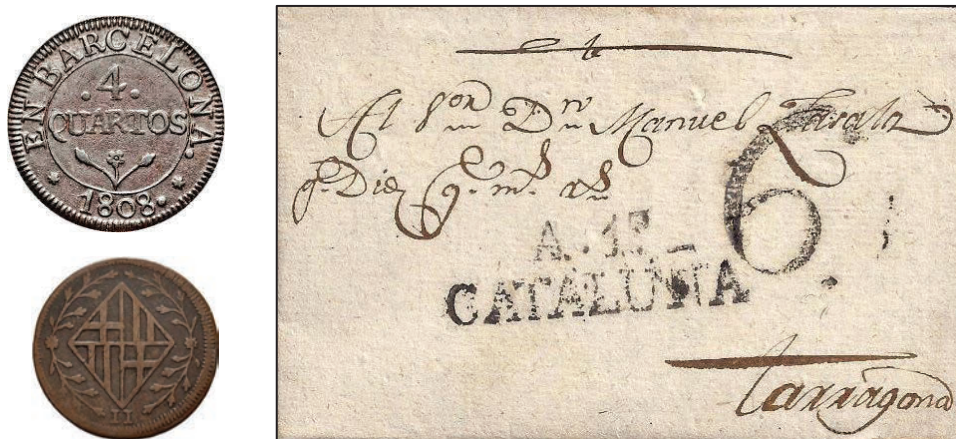 EN BARCELONA.
.4.
QUARTOS
1808.
II
Al Sor Dn Manuel
6.
A. 13_
CATALUÑA
Tarragona